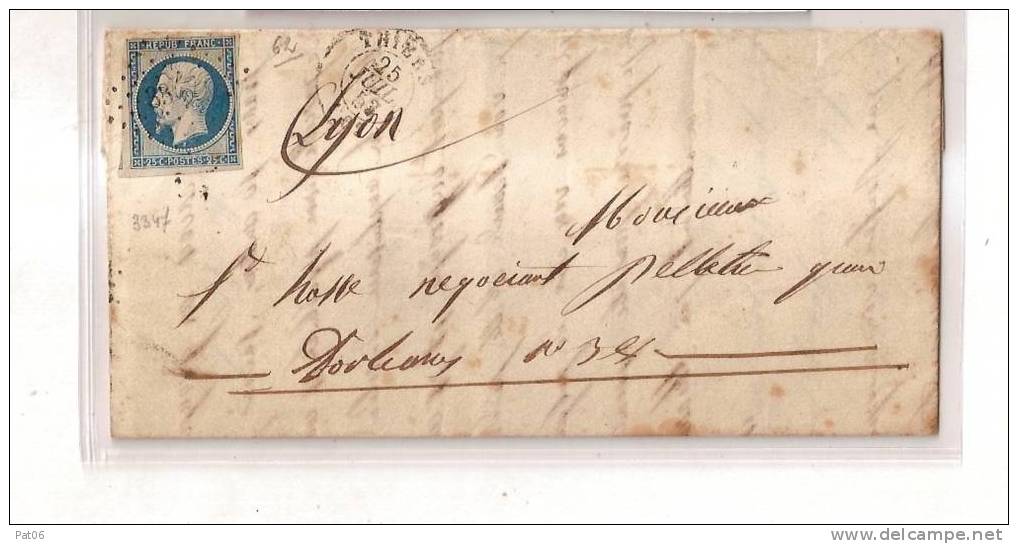 REPUB FRANC
25 C POSTES 25 C
THIERS
25
JUIL
52
3347
Lyon
Monsieur
negociant pelletier quai
Dorleans n° 34
Pat06
www.delcampe.net